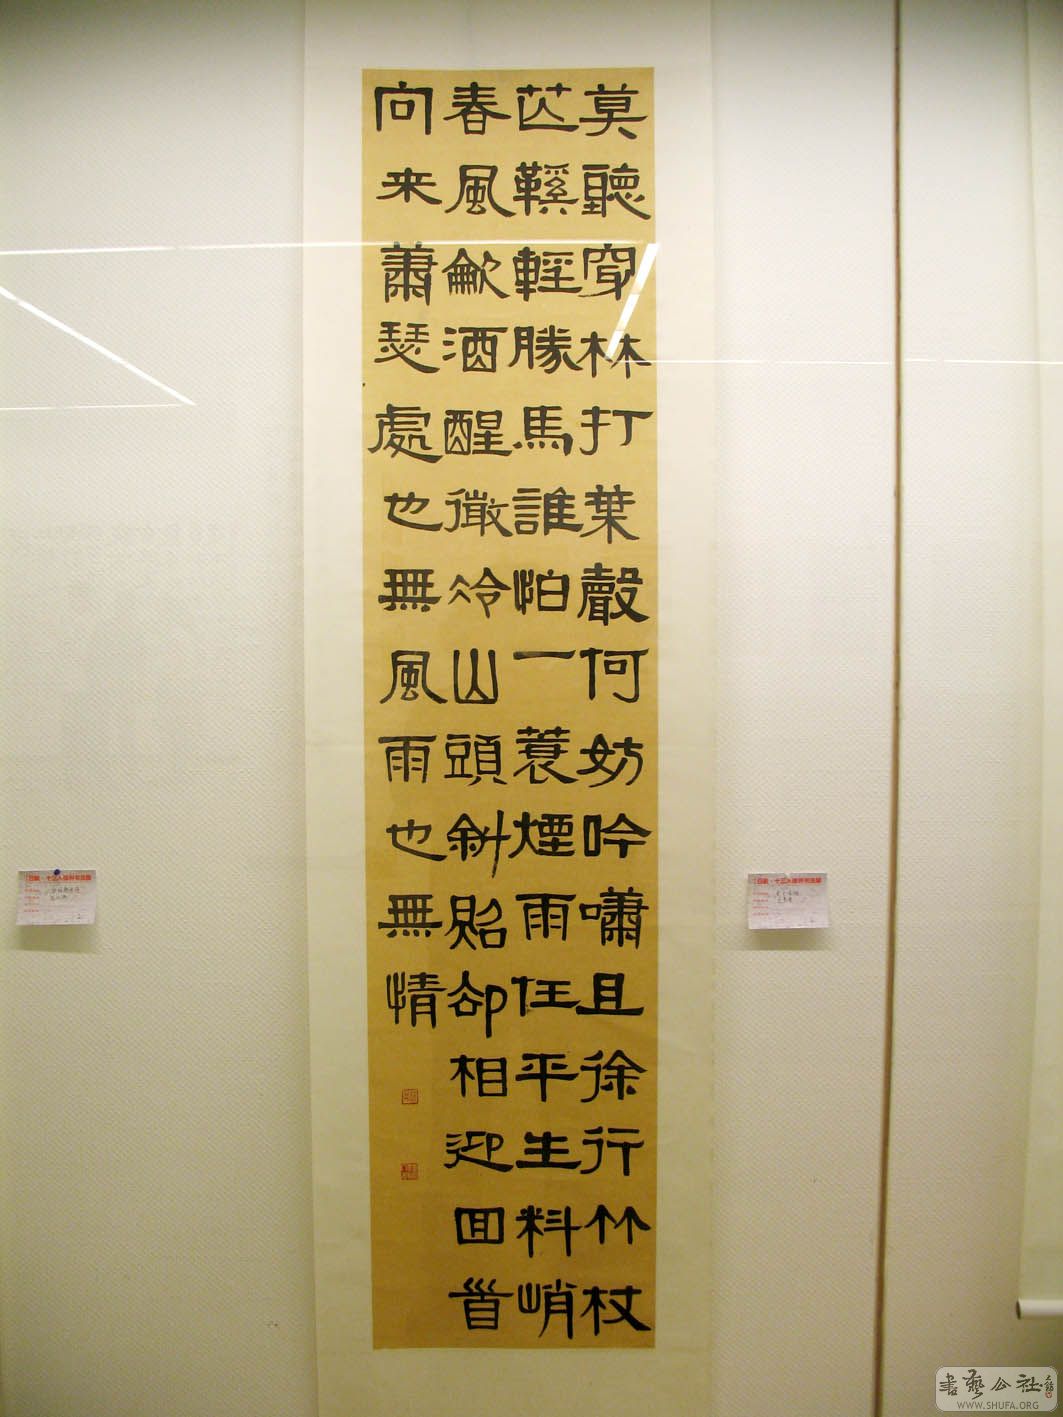 莫聽穿林打葉聲何妨吟嘯且徐行竹杖
芒鞵輕勝馬誰怕一蓑煙雨任平生料峭
春風龡酒醒微冷山頭斜照卻相迎回首
向来蕭瑟處也無風雨也無情
書藝公社
WWW.SHUFA.ORG